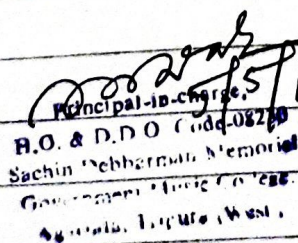 5/5/
Principal-in-charge,
H.O. & D.D.O Code-082
Sachin Debbarman Memorial
Government Music College.
Agartala, Tripura (West).